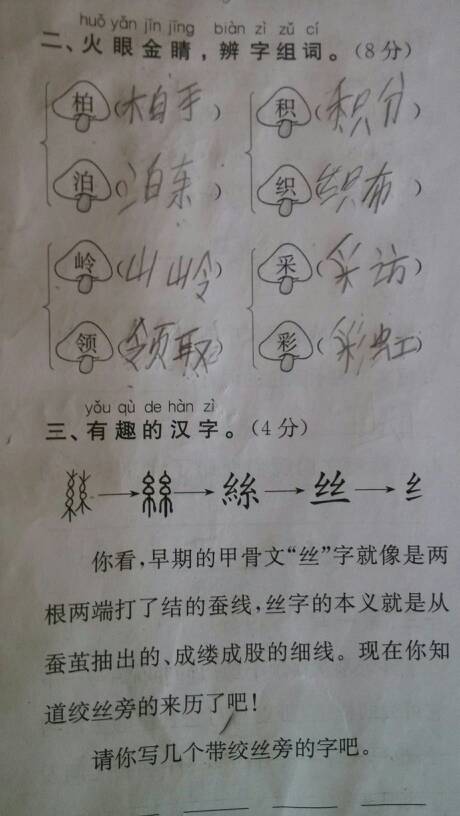 huǒ yǎn jīn jīng biàn zì zǔ cí
二、火眼金睛，辨字组词。（8分）
柏（柏手） 积（积分）
泊（泊车） 织（织布）
岭（山岭） 采（采访）
领（领取） 彩（彩虹）
yǒu qù de hàn zì
三、有趣的汉字。（4分）
絲→絲→丝→纟
你看，早期的甲骨文“丝”字就像是两
根两端打了结的蚕线，丝字的本义就是从
蚕茧抽出的、成缕成股的细线。现在你知
道绞丝旁的来历了吧！
请你写几个带绞丝旁的字吧。